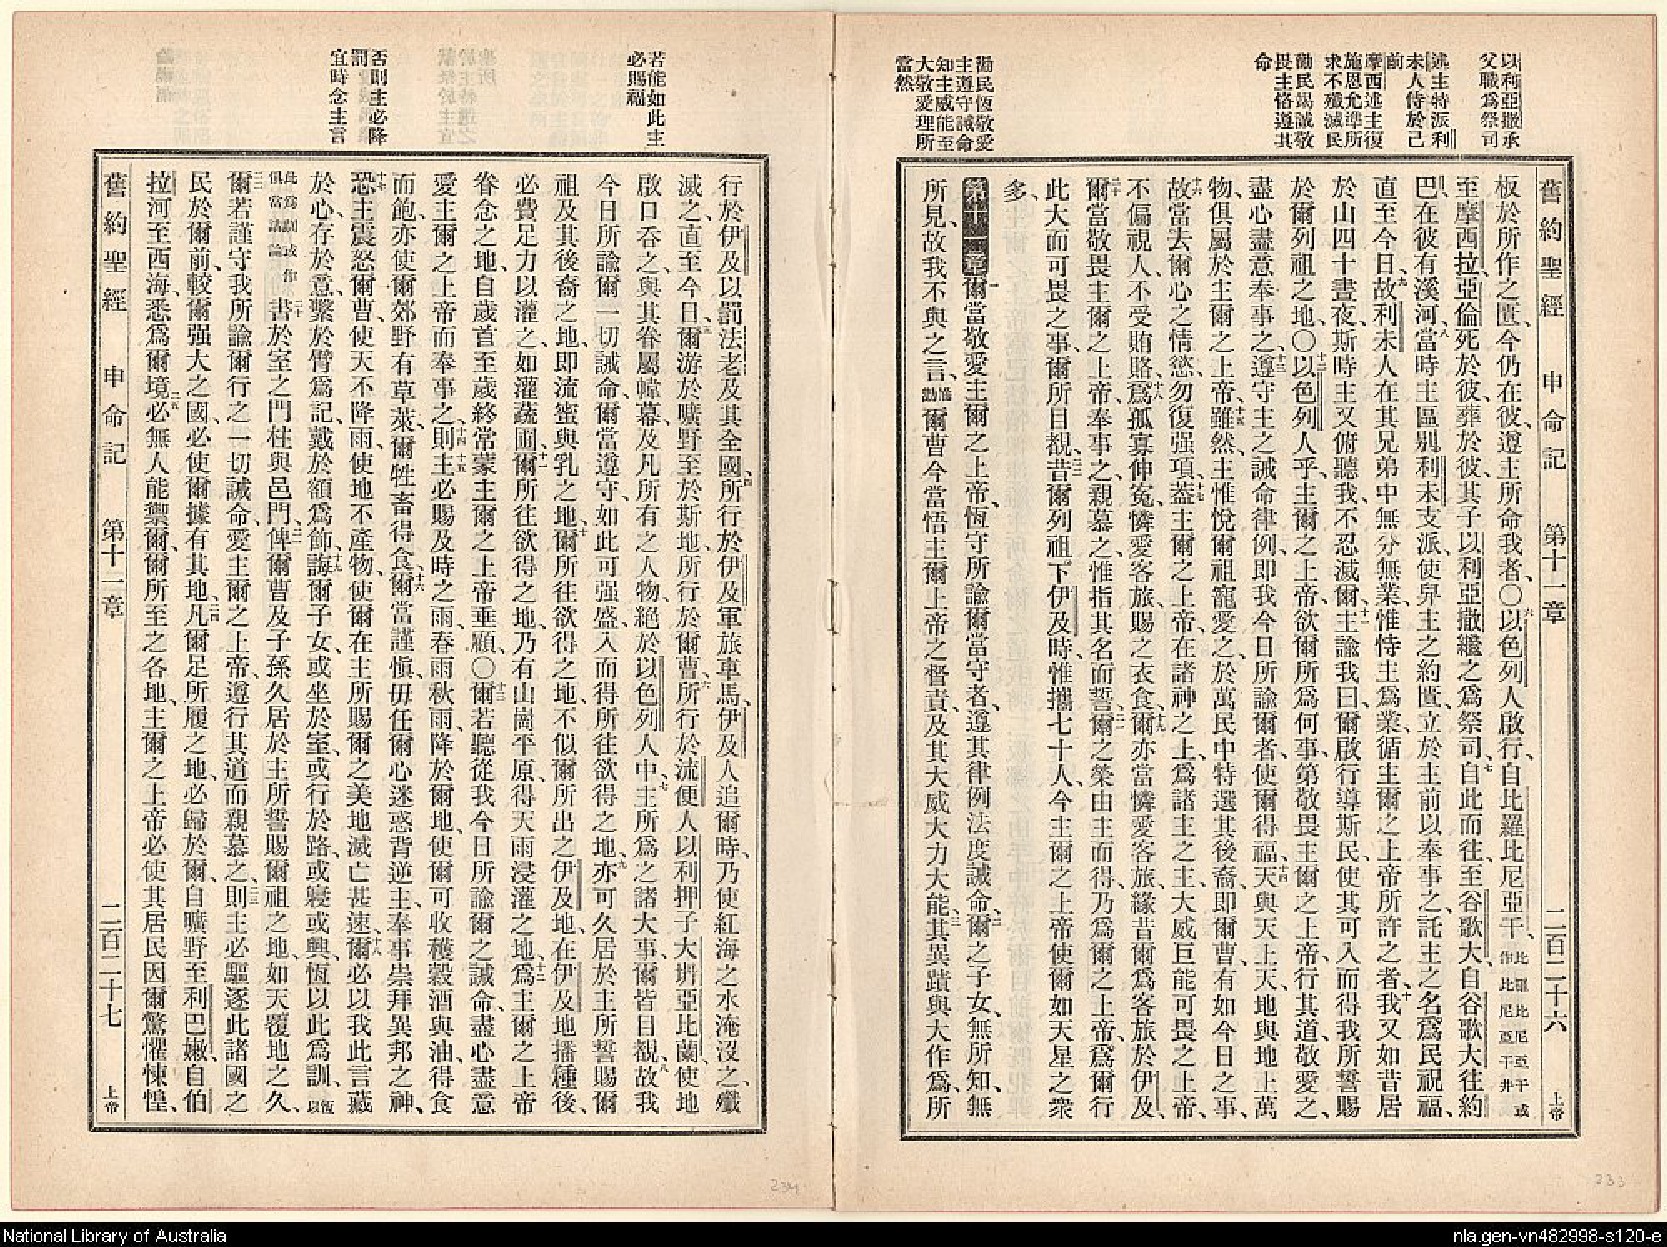 以利亞撒承
父職爲祭司
述主特派利
未人侍於己
前
摩西述主復
施恩允準所
求不殲滅民
勸民竭誠敬
畏主恪遵其
命
勸民恆敬愛
主遵守誡命
知主威能至
大敬愛理所
當然
舊約聖經 申命記 第十一章 二百二十六 上帝
板於所作之匱、今仍在彼、遵主所命我者、〇六以色列人啟行、自比羅比尼亞干、比羅比尼亞干或作比尼亞干井
至摩西拉、亞倫死於彼、葬於彼、其子以利亞撒繼之爲祭司、七自此而往、至谷歌大、自谷歌大往約
巴在彼有溪河、八當時主區別利未支派、使舁主之約匱、立於主前以奉事之、託主之名爲民祝福、
直至今日、九故利未人在其兄弟中無分無業、惟恃主爲業、循主爾之上帝所許之者、十我又如昔居
於山四十晝夜、斯時主又俯聽我、不忍滅爾、十一主諭我曰、爾啟行導斯民、使其可入而得我所誓賜
於爾列祖之地、〇十二以色列人乎、主爾之上帝欲爾所爲何事、第敬畏主爾之上帝、行其道、敬愛之、
盡心盡意奉事之、十三遵守主之誡命律例、即我今日所諭爾者、使爾得福、十四天與天上天、地與地上萬
物、俱屬於主爾之上帝、十五雖然、主惟悅爾祖寵愛之、於萬民中特選其後裔、即爾曹、有如今日之事、
十六故當去爾心之情慾、勿復强項、十七蓋主爾之上帝、在諸神之上、爲諸主之主、大威巨能可畏之上帝、
不偏視人、不受賄賂、十八爲孤寡伸冤、憐愛客旅、賜之衣食、十九爾亦當憐愛客旅、緣昔爾爲客旅於伊及、
二十爾當敬畏主爾之上帝、奉事之、親慕之、惟指其名而誓、二一爾之榮由主而得、乃爲爾之上帝、爲爾行
此大而可畏之事、爾所目覩、二二昔爾列祖下伊及時、惟攜七十人、今主爾之上帝使爾如天星之衆
多、
第十一章 一爾當敬愛主爾之上帝、恆守所諭爾當守者、遵其律例法度誡命、二爾之子女、無所知、無
所見、故我不與之言、爾曹今當悟主爾上帝之督責、及其大威大力大能、三其異蹟與大作爲、所
若能如此主
必賜福
否則主必降
罰
宜時念主言
行於伊及、以罰法老及其全國、四所行於伊及軍旅車馬、伊及人追爾時、乃使紅海之水淹沒之、殲
滅之、直至今日、五爾游於曠野至於斯地、所行於爾曹、六所行於流便人以利押子大坍亞比蘭、使地
啟口吞之、與其眷屬幃幕、及凡所有之人物、絕於以色列人中、七主所爲之諸大事、爾皆目覩、八故我
今日所諭爾一切誡命、爾當遵守、如此可强盛、入而得所往欲得之地、九亦可久居於主所誓賜爾
祖及其後裔之地、即流蜜與乳之地、十爾所往欲得之地、不似爾所出之伊及地、在伊及地播種後、
必費足力以灌之、如灌蔬圃、十一爾所往欲得之地、乃有山崗平原、得天雨浸灌之地、十二爲主爾之上帝
眷念之地、自歲首至歲終、常蒙主爾之上帝垂顧、〇十三爾若聽從我今日所諭爾之誡命、盡心盡意
愛主爾之上帝而奉事之、十四則主必賜及時之雨、春雨秋雨、降於爾地、使爾可收穫穀酒與油、十五得食
而飽、亦使爾郊野有草萊、爾牲畜得食、十六爾當謹愼、毋任爾心迷惑背逆主、奉事崇拜異邦之神、
十七恐主震怒爾曹、使天不降雨、使地不產物、使爾在主所賜爾之美地滅亡甚速、十八爾必以我此言藏
於心、存於意、繫於臂爲記、戴於額爲飾、十九誨爾子女、或坐於室、或行於路、或寢或興、恆以此爲訓、恆以
此爲訓或作俱當講論 二十書於室之門柱與邑門、二一俾爾曹及子孫久居於主所誓賜爾祖之地、如天覆地之久、
二二爾若謹守我所諭爾行之一切誡命、愛主爾之上帝、遵行其道而親慕之、二三則主必驅逐此諸國之
民於爾前、較爾强大之國、必使爾據有其地、二四凡爾足所履之地、必歸於爾、自曠野至利巴嫩、自伯
拉河至西海、悉爲爾境、二五必無人能禦爾、爾所至之各地、主爾之上帝必使其居民因爾驚懼悚惶、
舊約聖經 申命記 第十一章 二百二十七 上帝
234
233
National Library of Australia
nla.gen-vn482998-s120-e